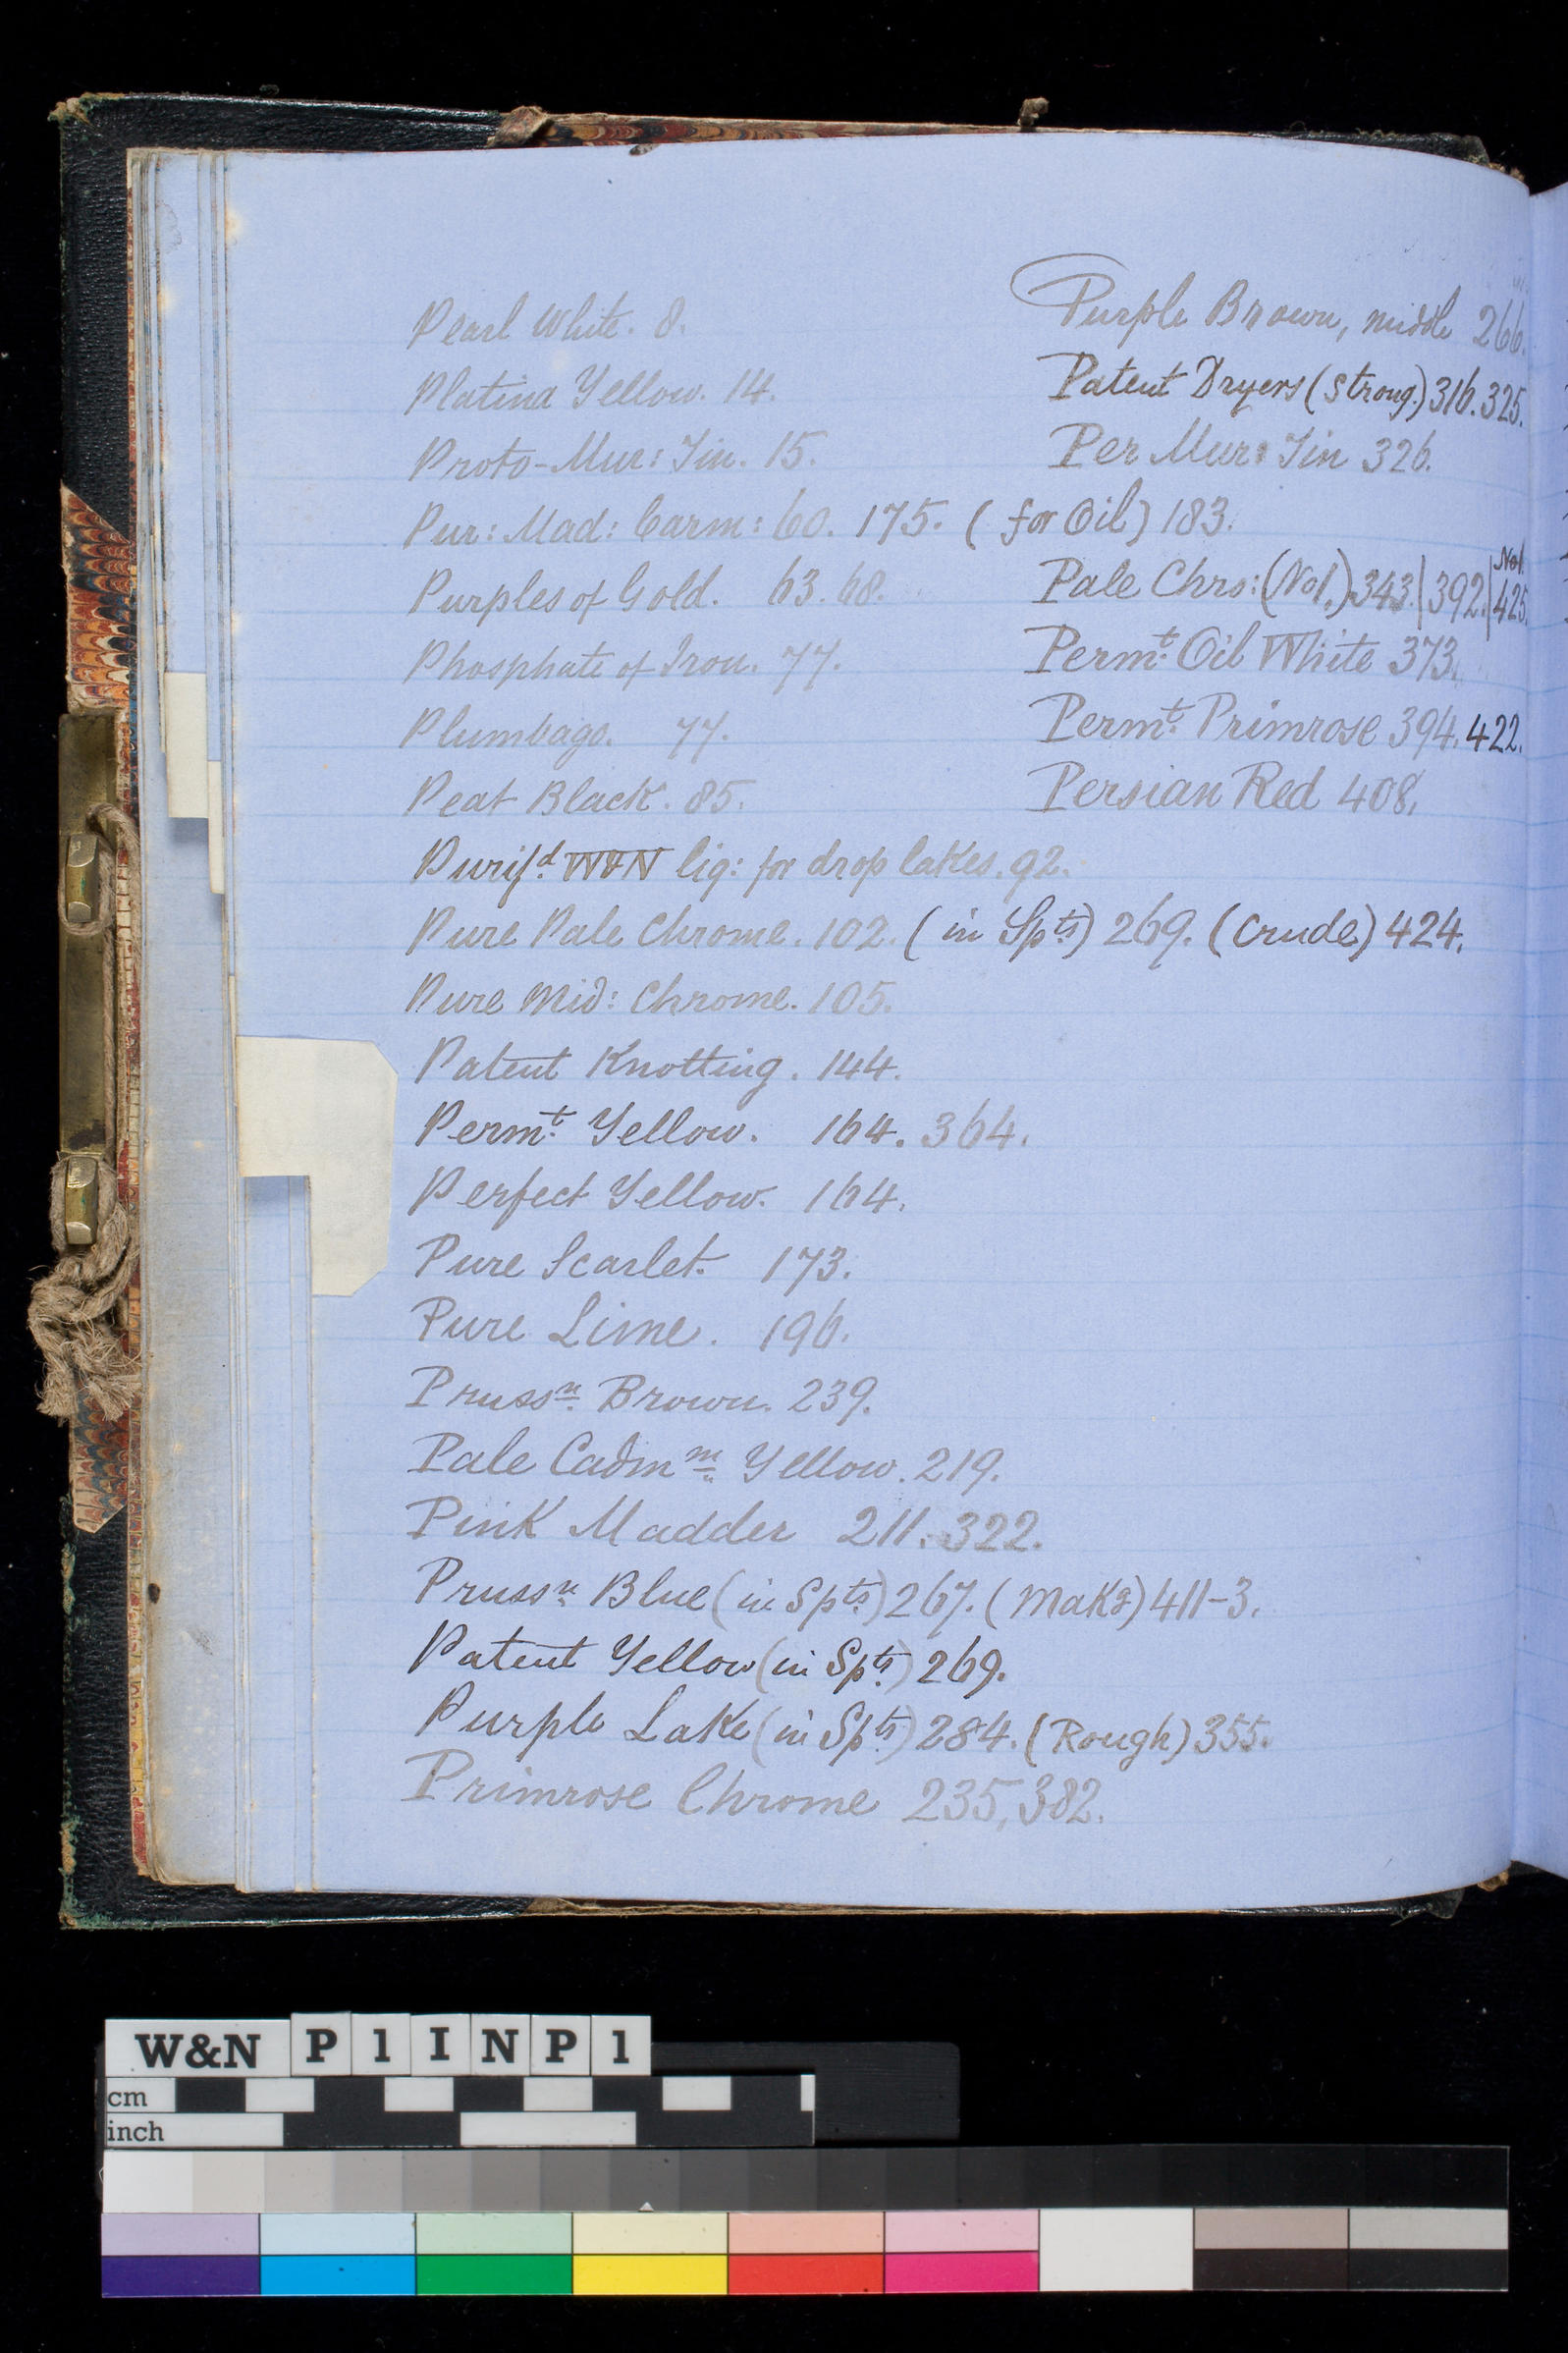 Pearl White. 8.
Platina Yellow. 14.
Proto-Mur: Tin. 15.
Pur: Mad: Carm: 60. 175. (for Oil) 183.
Purples of Gold. 63. 68.
Phosphate of Iron. 77.
Plumbago. 77.
Peat Black. 85.
Purif.d W&N liq: for drop lakes. 92.
Pure Pale Chrome. 102. (in Sp.ts) 269. (Crude) 424.
Pure Mid: Chrome. 105.
Patent Knotting. 144.
Perm.t Yellow. 164. 364.
Perfect Yellow. 164.
Pure Scarlet. 173.
Pure Lime. 196.
Pruss.n Brown. 239.
Pale Cadm.m Yellow. 219.
Pink Madder 211. 322.
Pruss.n Blue (in Sp.ts) 267. (Mak.g) 411-3.
Patent Yellow (in Sp.ts) 269.
Purple Lake (in Sp.ts) 284. (Rough) 355.
Primrose Chrome 235, 382.
Purple Brown, middle 266.
Patent Dryers (Strong.) 316. 325.
Per Mur: Tin 326.
Pale Chro: (No1.) 343. | 392. | No1. 425.
Perm.t Oil White 373.
Perm.t Primrose 394. 422.
Persian Red 408.
W&N P 1 I N P 1
cm
inch